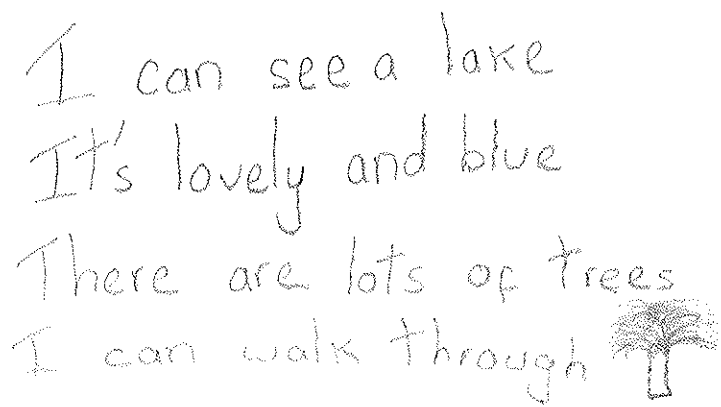 I can see a lake
It's lovely and blue
There are lots of trees
I can walk through